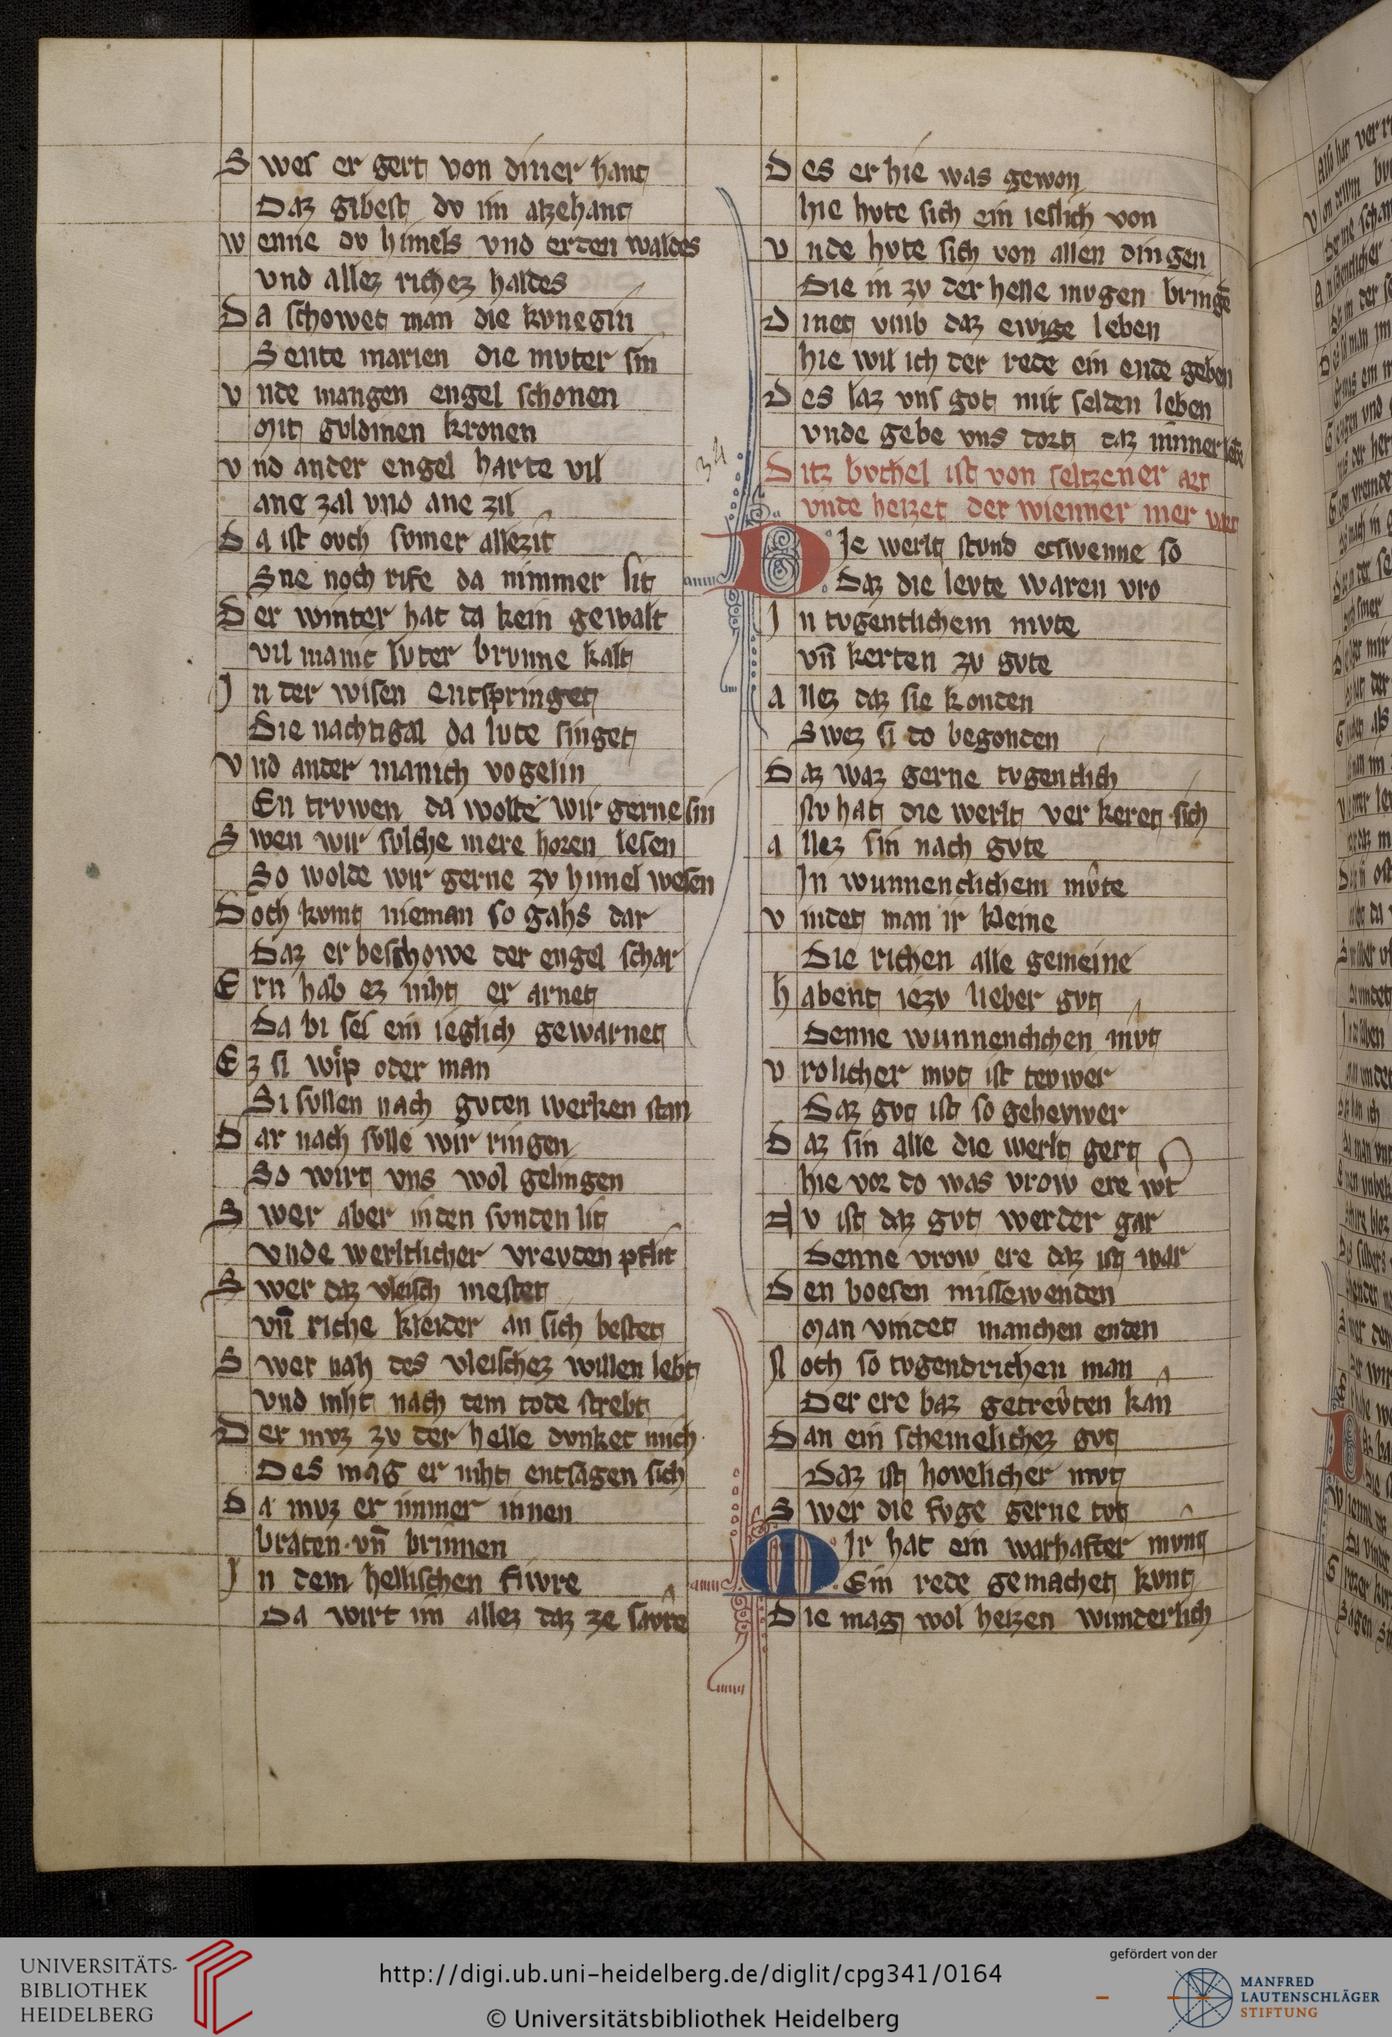 Swes er gert von diner hant
Daz gibest dv im alzehant
wenne dv himels vnd erten waldes
vnd allez richez haldes
Da schowet man die kvnegin
Sente marien die mvter sin
vnde mangen engel schonen
Mit gvldinen kronen
vnd ander engel harte vil
ane zal vnd ane zil
Da ist ovch svmer allezit
Sne noch rife da nimmer lit
Der winter hat da kein gewalt
vil manic lvter brvnne kalt
In der wisen entspringet
Die nachtigal da lvte singet
vnd ander manich vogelin
En trvwen da wolte wir gerne sin
Swen wir sulche mere horen lesen
So wolde wir gerne zv himel wesen
Doch kvmt nieman so gahs dar
Daz er beschowe der engel schar
Ern hab ez niht er arnet
Da bi sei ein ieglich gewarnet
Ez si wip oder man
Si svllen nach gvten werken stan
Dar nach svlle wir ringen
So wirt vns wol gelingen
Swer aber in den svnden lit
vnde werltlicher vrevden pflit
Swer daz vleisch mestet
vn̄ riche kleider an sich bestet
Swer nah des vleischez willen lebt
vnd niht nach dem tode strebt
Der mvz zv der helle dvnket mich
Des mag er niht entsagen sich
Da mvz er immer innen
braten vn̄ brinnen
In dem hellischen fiwre
Da wirt im allez daz ze savre
Des er hie was gewon
hie hvte sich ein ieslich von
vnde hvte sich von allen dingen
Die in zv der helle mvgen bringē
Dinet vmb daz ewige leben
hie wil ich der rede ein ende geben
Des laz vns got mit selden leben
vnde gebe vns dort daz immer lebē
34
Ditz bvchel ist von seltzener art
vnde heizet der wienner mer vart
Die werlt stvnd etswenne so
Daz die levte waren vro
In tvgentlichem mvte
vn̄ kerten zv gvte
allez daz sie konden
Swez si do begonden
Daz waz gerne tvgentlich
Nv hat die werlt ver keret sich
allez sin nach gvte
In wunnenclichem mv̂te
vindet man ir kleine
Die richen alle gemeine
habent iezv lieber gvt
Denne wunnenclichen mvt
vrolicher mvt ist tevwer
Daz gvt ist so gehevwer
Daz sin alle die werlt gert
hie vor do was vrow ere wt
Nv ist daz gvt werder gar
Denne vrow ere daz ist war
Den boesen missewenden
Man vindet manchen enden
Noch so tvgendrichen man
Der ere baz getrev̂ten kan
Dan ein schemelichez gvt
Daz ist hovelicher mvt
Swer die fvge gerne tvt
Mir hat ein warhafter mvnt
Ein rede gemachet kvnt
Die mag wol heizen wunderlich
UNIVERSITÄTS-
BIBLIOTHEK
HEIDELBERG
http://digi.ub.uni-heidelberg.de/diglit/cpg341/0164
© Universitätsbibliothek Heidelberg
gefördert von der
MANFRED
LAUTENSCHLÄGER
STIFTUNG